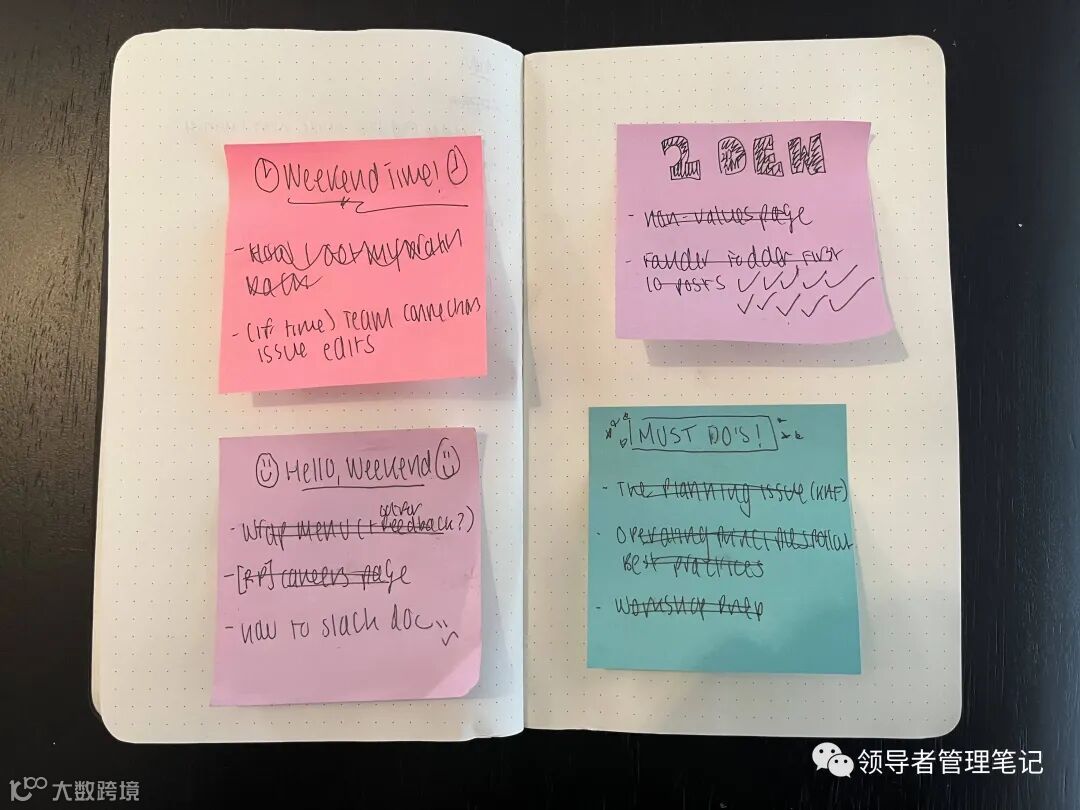 Weekend Time!
- (if time) Team connections
issue edits
Hello, Weekend
get for
- Wrap menu (+ feedback?)
- [RP] careers page
- how to slack doc
2 DEW
- non-values page
- Founder Fodder First
10 posts
MUST DO'S!
- The planning issue (KHF)
- Operating principles
Best practices
- Workshop Prep
领导者管理笔记
大数跨境